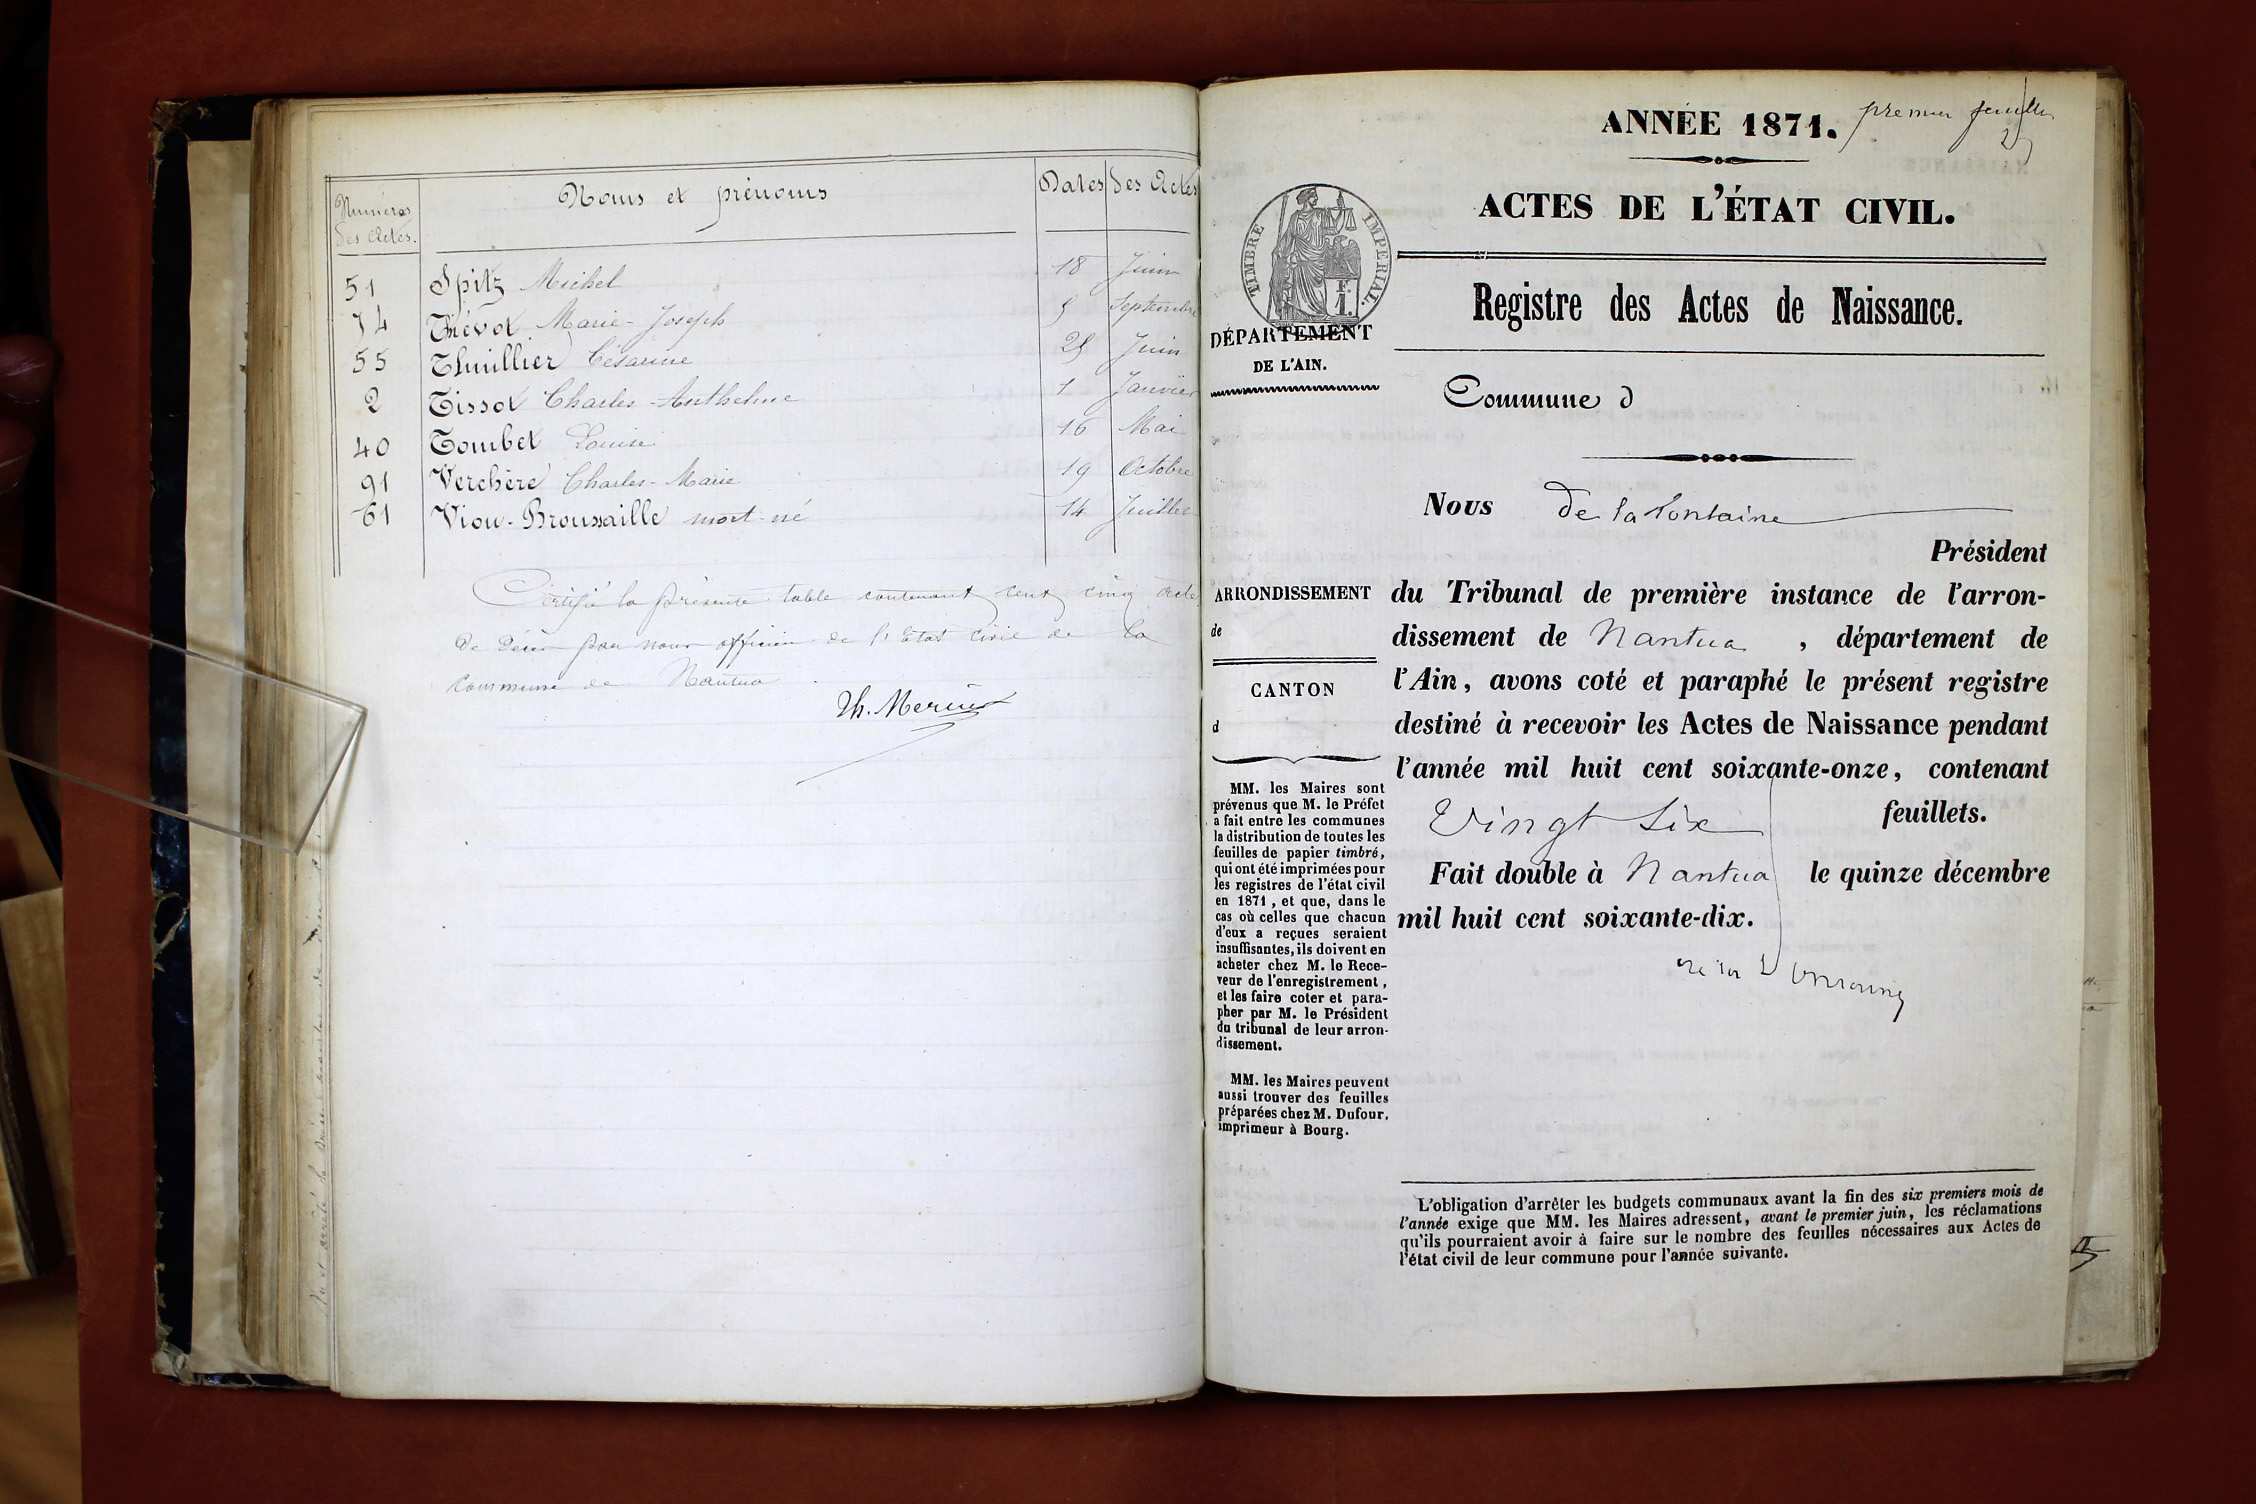 Numéros des Actes. Noms et prénoms Dates des Actes
51 Spitz Michel 18 Juin
74 Thévot Marie-Joseph 5 Septembre
55 Thuillier Césarine 25 Juin
2 Tissot Charles-Anthelme 1 Janvier
40 Tombet Louise 16 Mai
91 Verchère Charles-Marie 19 Octobre
61 Viou-Broussaille mort-né 14 Juillet
Certifié la présente table contenant cent cinq actes
de décès par nous officier de l'Etat civil de la
commune de Nantua.
Th. Mercier
ANNÉE 1871.
premier feuillet
ACTES DE L'ÉTAT CIVIL.
TIMBRE IMPÉRIAL.
F. 1.
Registre des Actes de Naissance.
DÉPARTEMENT
DE L'AIN.
Commune d
Nous De la fontaine
Président
ARRONDISSEMENT
de
CANTON
d
du Tribunal de première instance de l'arron-
dissement de Nantua, département de
l'Ain, avons coté et paraphé le présent registre
destiné à recevoir les Actes de Naissance pendant
l'année mil huit cent soixante-onze, contenant
Vingt six feuillets.
Fait double à Nantua le quinze décembre
mil huit cent soixante-dix.
MM. les Maires sont
prévenus que M. le Préfet
a fait entre les communes
la distribution de toutes les
feuilles de papier timbré,
qui ont été imprimées pour
les registres de l'état civil
en 1871, et que, dans le
cas où celles que chacun
d'eux a reçues seraient
insuffisantes, ils doivent en
acheter chez M. le Rece-
veur de l'enregistrement,
et les faire coter et para-
pher par M. le Président
du tribunal de leur arron-
dissement.
MM. les Maires peuvent
aussi trouver des feuilles
préparées chez M. Dufour,
imprimeur à Bourg.
L'obligation d'arrêter les budgets communaux avant la fin des six premiers mois de
l'année exige que MM. les Maires adressent, avant le premier juin, les réclamations
qu'ils pourraient avoir à faire sur le nombre des feuilles nécessaires aux Actes de
l'état civil de leur commune pour l'année suivante.